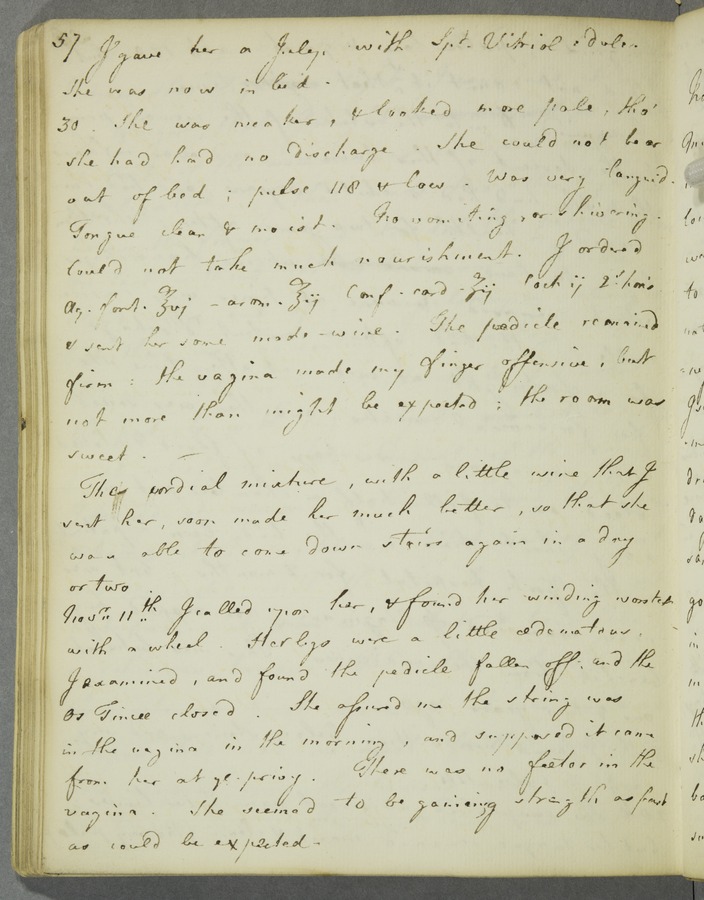 57 I gave her a Julep. with Spt. Vitriol: dulc.
She was now in bed.
30. She was weaker, & looked more pale, tho'
she had had no discharge. She could not bear
out of bed; pulse 118 & low. Was very languid.
Tongue clean & moist. No vomiting nor shivering.
Could not take much nourishment. I ordered
Aq. font. ℥vj - arom. ℥ij Conf. card. ʒij Coch ij 2.s horis
& sent her some made-wine. The pedicle remained
firm: the vagina made my finger offensive, but
not more than might be expected; the room was
sweet. -
The cordial mixture, with a little wine that I
sent her, soon made her much better, so that she
was able to come down stairs again in a day
or two
Novr. 11th. I called upon her, & found her winding worsted
with a wheel. Her legs were a little œdematous.
I examined, and found the pedicle fallen off: and the
Os Tincæ closed. She assured me the string was
in the vagina in the morning, and supposed it came
from her at ye. privy. There was no foetor in the
vagina. She seemed to be gaining strength as fast
as could be expected.